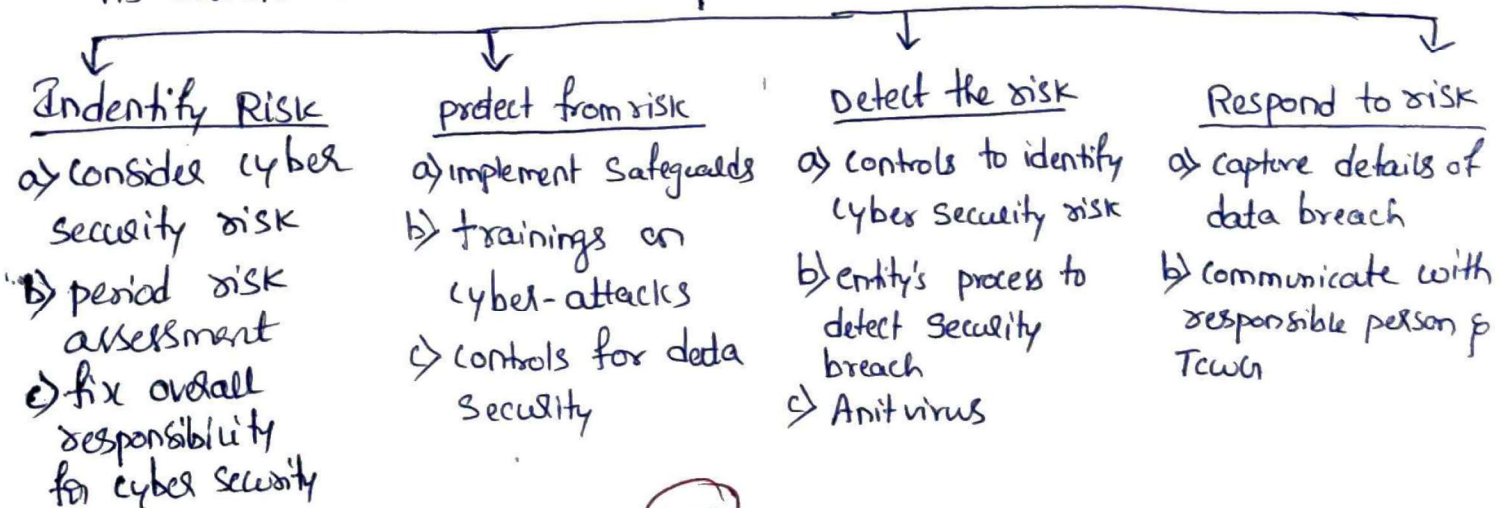 Indentify Risk
a) consider cyber
security risk
b) period risk
assessment
c) fix overall
responsibility
for cyber security
protect from risk
a) implement Safeguards
b) trainings on
cyber-attacks
c) controls for data
Security
Detect the risk
a) controls to identify
cyber security risk
b) entity's process to
detect security
breach
c) Anitvirus
Respond to risk
a) capture details of
data breach
b) communicate with
responsible person &
TCWG